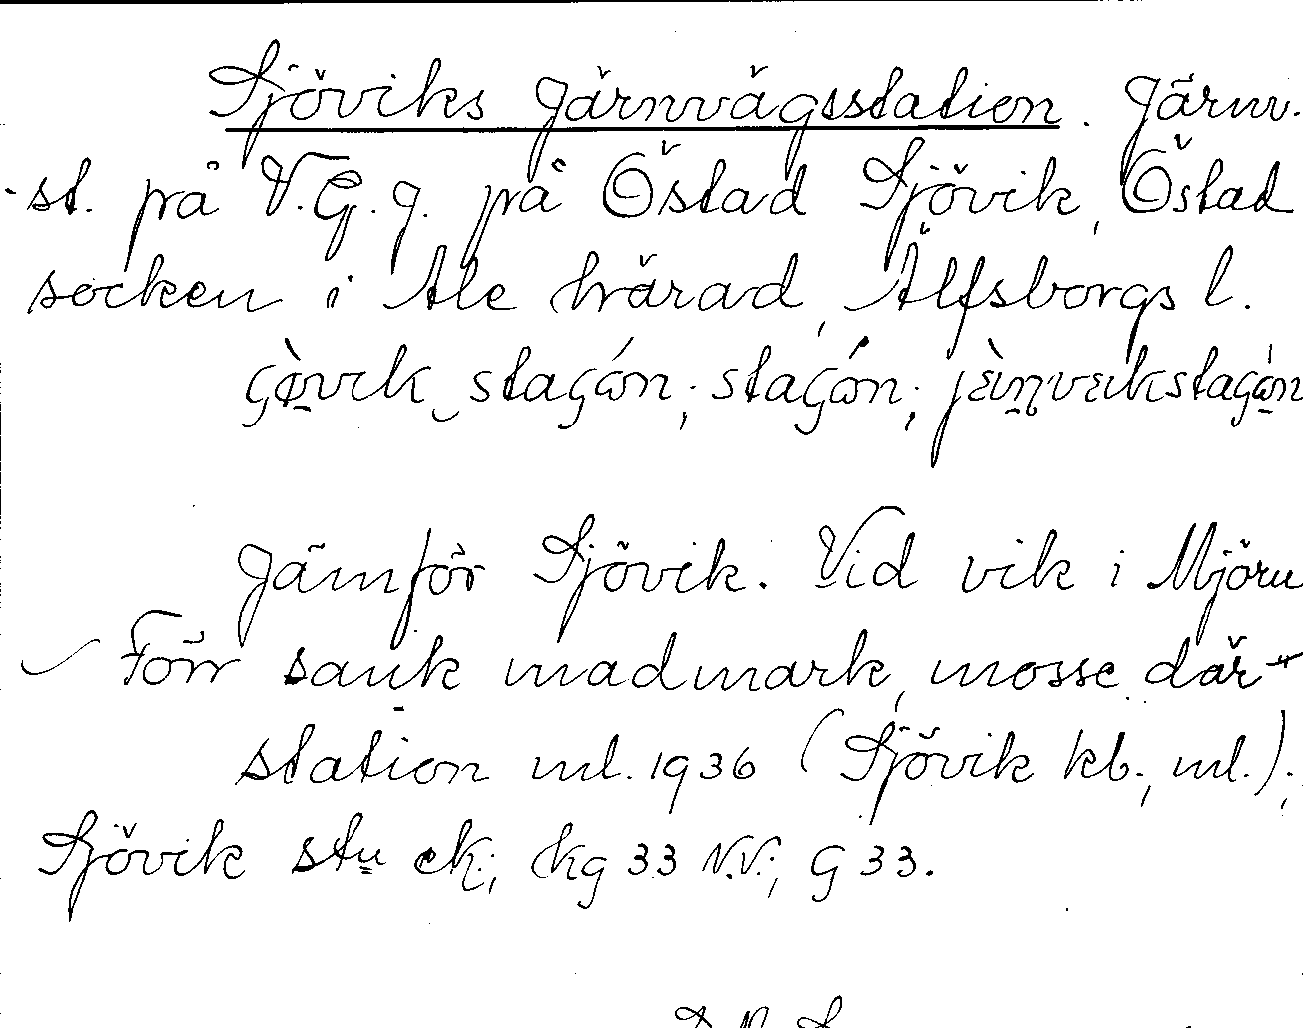 Sjöviks Järnvägsstation. Järnv.
st. på V.G.J. på Östad Sjövik, Östad
socken i Ale härad, Älfsborgs l.
stasjón; stasjón;
Jämför Sjövik. Vid vik i Mjörn
Förr sank madmark, mosse där
station ml. 1936 (Sjövik kb., ml.);
Sjövik ek.; kg 33 N.V.; G 33.